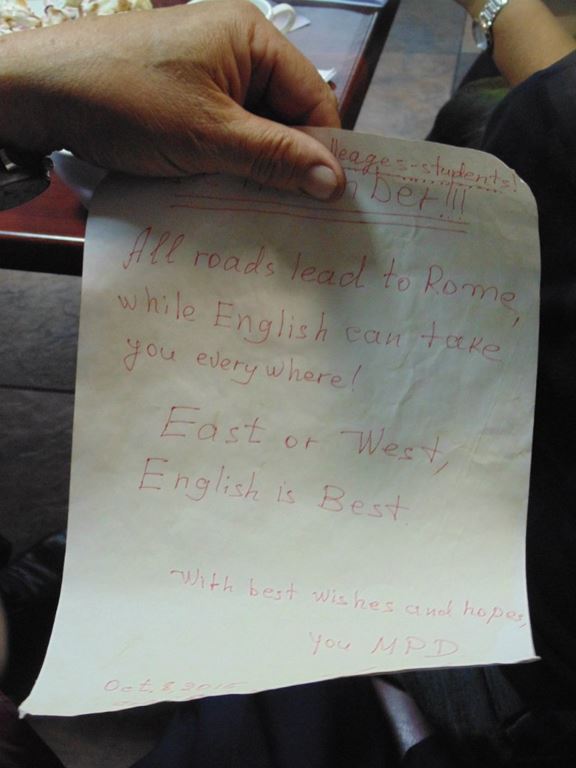 lleages-students!
ber!!!
All roads lead to Rome,
while English can take
you everywhere!
East or West,
English is Best.
With best wishes and hopes,
you MPD
Oct. 8, 2015